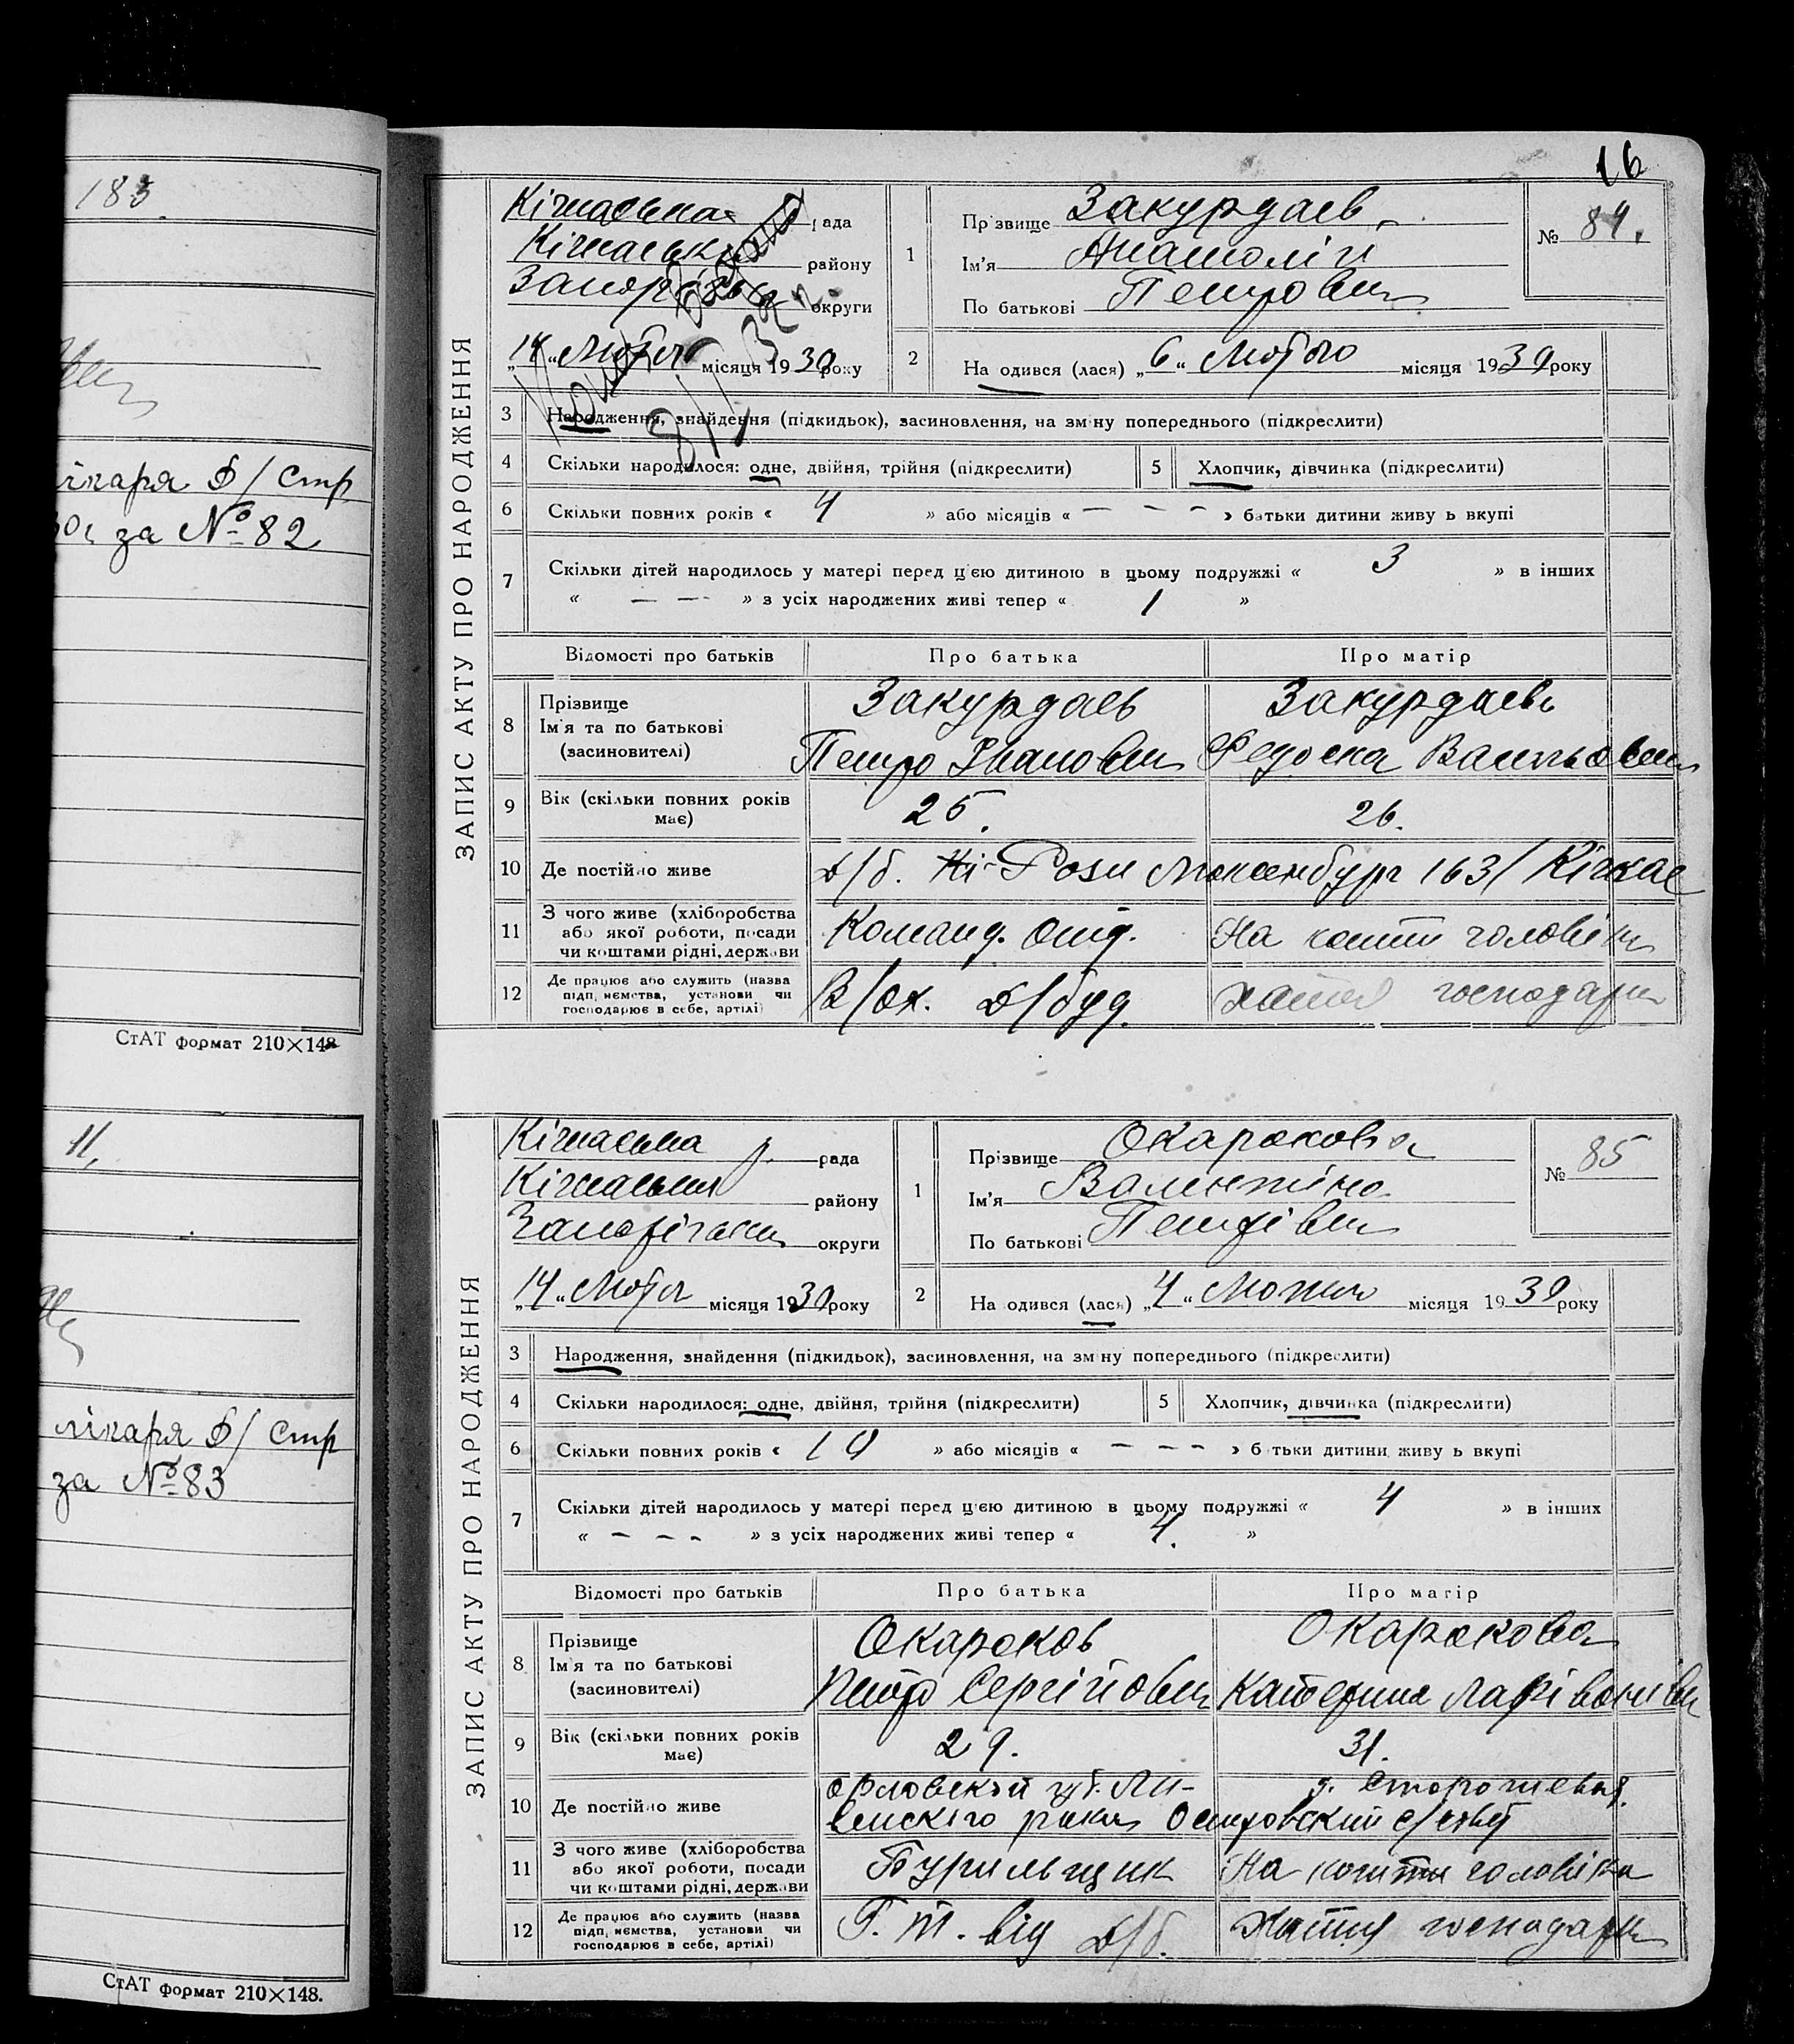 16
183.
лікаря Д/Стр
за № 82
СтАТ формат 210×148
11,
лікаря Д/Стр
за № 83
СтАТ формат 210×148.
ЗАПИС АКТУ ПРО НАРОДЖЕННЯ
Кічкаська рада
району
округи
14 „ Лютого місяця 1930 року
1 Прізвище Закурдаев
Ім'я Анатолій
По батькові Петрович
№ 84.
2 На одився (лася) „ 6 “ Лютого місяця 1930 року
3 Народження, знайдення (підкидьок), засиновлення, на зм ну попереднього (підкреслити)
4 Скільки народилося: одне, двійня, трійня (підкреслити)
5 Хлопчик, дівчинка (підкреслити)
6 Скільки повних років « 4 » або місяців « – – – » батьки дитини живу ь вкупі
7 Скільки дітей народилось у матері перед ц'єю дитиною в цьому подружжі « 3 » в інших
« — — - » з усіх народжених живі тепер « 1 »
Відомості про батьків Про батька Про матір
8 Прізвище
Ім'я та по батькові
(засиновителі)
Закурдаев
Петро Іванович
Закурдаева
Федоска
9 Вік (скільки повних років має) 25. 26.
10 Де постійно живе Д/б. 163/ Кічкас
11 З чого живе (хліборобства
або якої роботи, посади
чи коштами рідні, держави
Команд. Отд. На кошти чоловіка
12 Де працює або служить (назва
підп, иємства, установи чи
господарює в себе, артілі)
В/ох. Д/буд. хатня господарка
ЗАПИС АКТУ ПРО НАРОДЖЕННЯ
Кічкаська р. рада
району
округи
„ 14 “ Лютого місяця 1930 року
1 Прізвище Окарокова
Ім'я Валентіна
По батькові Петрівна
№ 85
2 На одився (лася) „ 4 “ Лютого місяця 1930 року
3 Народження, знайдення (підкидьок), засиновлення, на зм ну попереднього (підкреслити)
4 Скільки народилося: одне, двійня, трійня (підкреслити)
5 Хлопчик, дівчинка (підкреслити)
6 Скільки повних років « » або місяців « – – – » б тьки дитини живу ь вкупі
7 Скільки дітей народилось у матері перед ц'єю дитиною в цьому подружжі « 4 » в інших
« – – – » з усіх народжених живі тепер « 4. »
Відомості про батьків Про батька Про матір
8 Прізвище
Ім'я та по батькові
(засиновителі)
Окароков
Петро Сергійович
Окарокова
Катерина Ларівонівна
9 Вік (скільки повних років має) 29. 31.
10 Де постійно живе
Орловской губ. Ли-
венского района с/совет
11 З чого живе (хліборобства
або якої роботи, посади
чи коштами рідні, держави
Бурильщик На кошти чоловіка
12 Де працює або служить (назва
підп, иємства, установи чи
господарює в себе, артілі)
Г. т. від Д/б. Хатня господарка